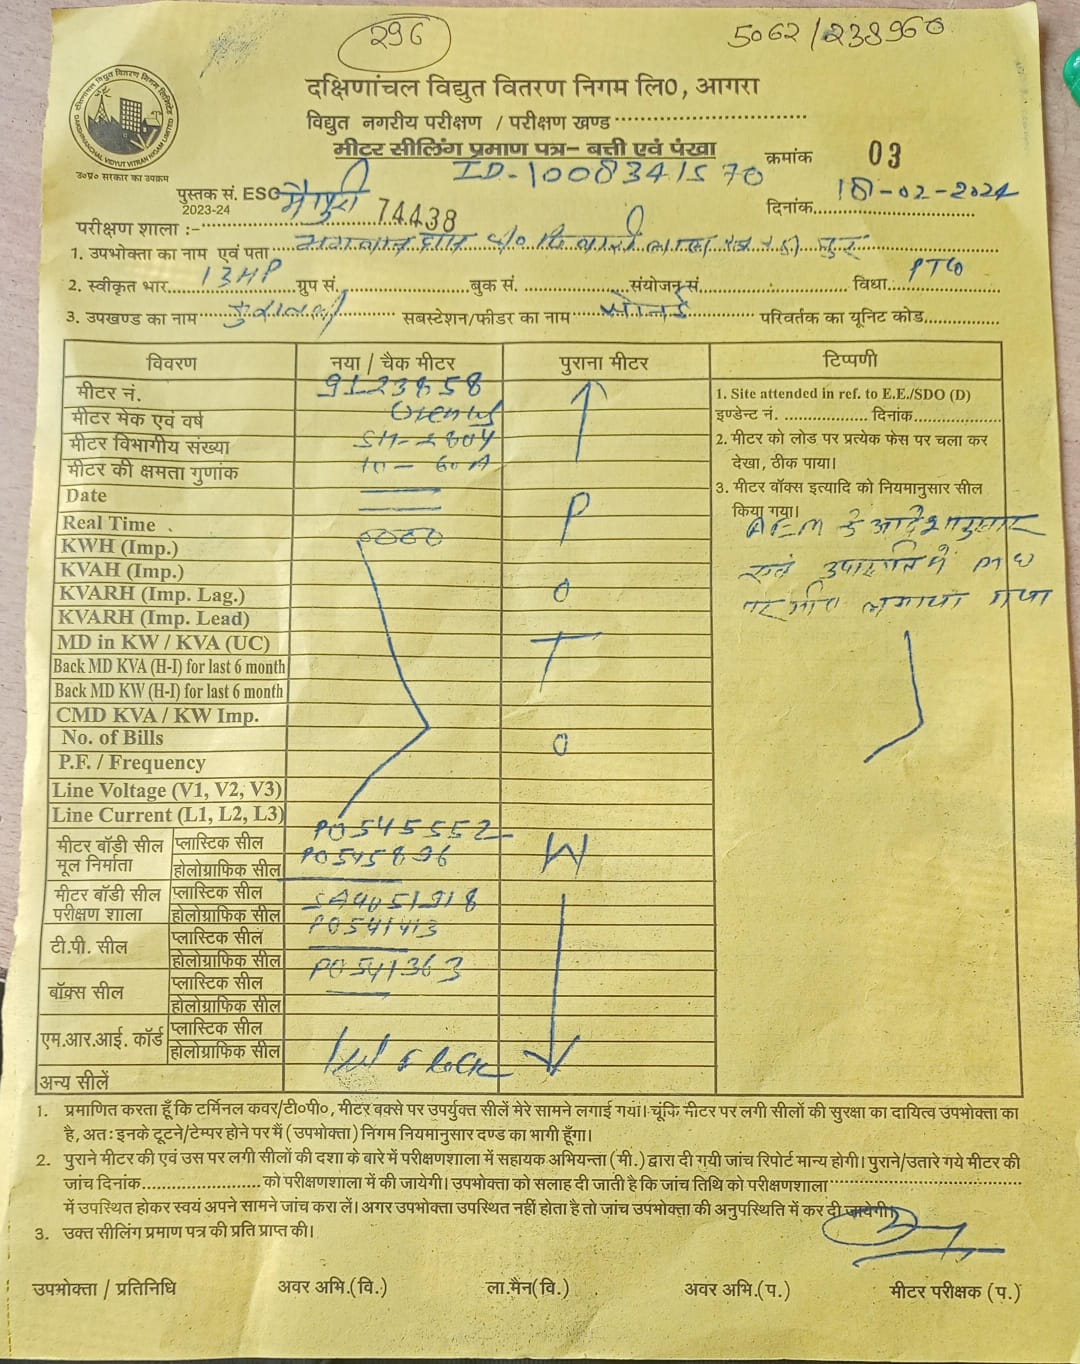 296
5062/238960
दक्षिणांचल विद्युत वितरण निगम लि0, आगरा
विद्युत नगरीय परीक्षण / परीक्षण खण्ड
मीटर सीलिंग प्रमाण पत्र- बत्ती एवं पंखा
क्रमांक 03
ID-1008341570
उ०प्र० सरकार का उपक्रम
पुस्तक सं. ESC मैनपुरी 74438
2023-24
दिनांक 18-02-2024
परीक्षण शाला :-
1. उपभोक्ता का नाम एवं पता भगवान दास
2. स्वीकृत भार 13HP ग्रुप सं. बुक सं. संयोजन सं. विधा PTW
3. उपखण्ड का नाम कुरावली सबस्टेशन/फीडर का नाम परिवर्तक का यूनिट कोड
विवरण नया / चैक मीटर पुराना मीटर टिप्पणी
मीटर नं. 9123858
मीटर मेक एवं वर्ष
मीटर विभागीय संख्या
मीटर की क्षमता गुणांक 10-60A
Date
Real Time
KWH (Imp.) 0000
KVAH (Imp.)
KVARH (Imp. Lag.)
KVARH (Imp. Lead)
MD in KW / KVA (UC)
Back MD KVA (H-I) for last 6 month
Back MD KW (H-I) for last 6 month
CMD KVA / KW Imp.
No. of Bills
P.F. / Frequency
Line Voltage (V1, V2, V3)
Line Current (L1, L2, L3)
P
O
T
O
W
1. Site attended in ref. to E.E./SDO (D)
इण्डेन्ट नं. दिनांक
2. मीटर को लोड पर प्रत्येक फेस पर चला कर
देखा, ठीक पाया।
3. मीटर बॉक्स इत्यादि को नियमानुसार सील
किया गया।
के आदेशानुसार
एवं उपस्थिति में
पर मीटर लगाया गया
मीटर बॉडी सील मूल निर्माता प्लास्टिक सील P0545552
होलोग्राफिक सील P0545896
मीटर बॉडी सील परीक्षण शाला प्लास्टिक सील
होलोग्राफिक सील
टी.पी. सील प्लास्टिक सील P0541413
होलोग्राफिक सील
बॉक्स सील प्लास्टिक सील P0541363
होलोग्राफिक सील
एम.आर.आई. कॉर्ड प्लास्टिक सील
होलोग्राफिक सील
अन्य सीलें
1. प्रमाणित करता हूँ कि टर्मिनल कवर/टी०पी०, मीटर बक्से पर उपर्युक्त सीलें मेरे सामने लगाई गयां। चूंकि मीटर पर लगी सीलों की सुरक्षा का दायित्व उपभोक्ता का
है, अतः इनके टूटने/टेम्पर होने पर मैं (उपभोक्ता) निगम नियमानुसार दण्ड का भागी हूँगा।
2. पुराने मीटर की एवं उस पर लगी सीलों की दशा के बारे में परीक्षणशाला में सहायक अभियन्ता (मी.) द्वारा दी गयी जांच रिपोर्ट मान्य होगी। पुराने/उतारे गये मीटर की
जांच दिनांक को परीक्षणशाला में की जायेगी। उपभोक्ता को सलाह दी जाती है कि जांच तिथि को परीक्षणशाला
में उपस्थित होकर स्वयं अपने सामने जांच करा लें। अगर उपभोक्ता उपस्थित नहीं होता है तो जांच उपभोक्ता की अनुपस्थिति में कर दी जायेगी।
3. उक्त सीलिंग प्रमाण पत्र की प्रति प्राप्त की।
उपभोक्ता / प्रतिनिधि अवर अभि.(वि.) ला.मैन(वि.) अवर अभि.(प.) मीटर परीक्षक (प.)